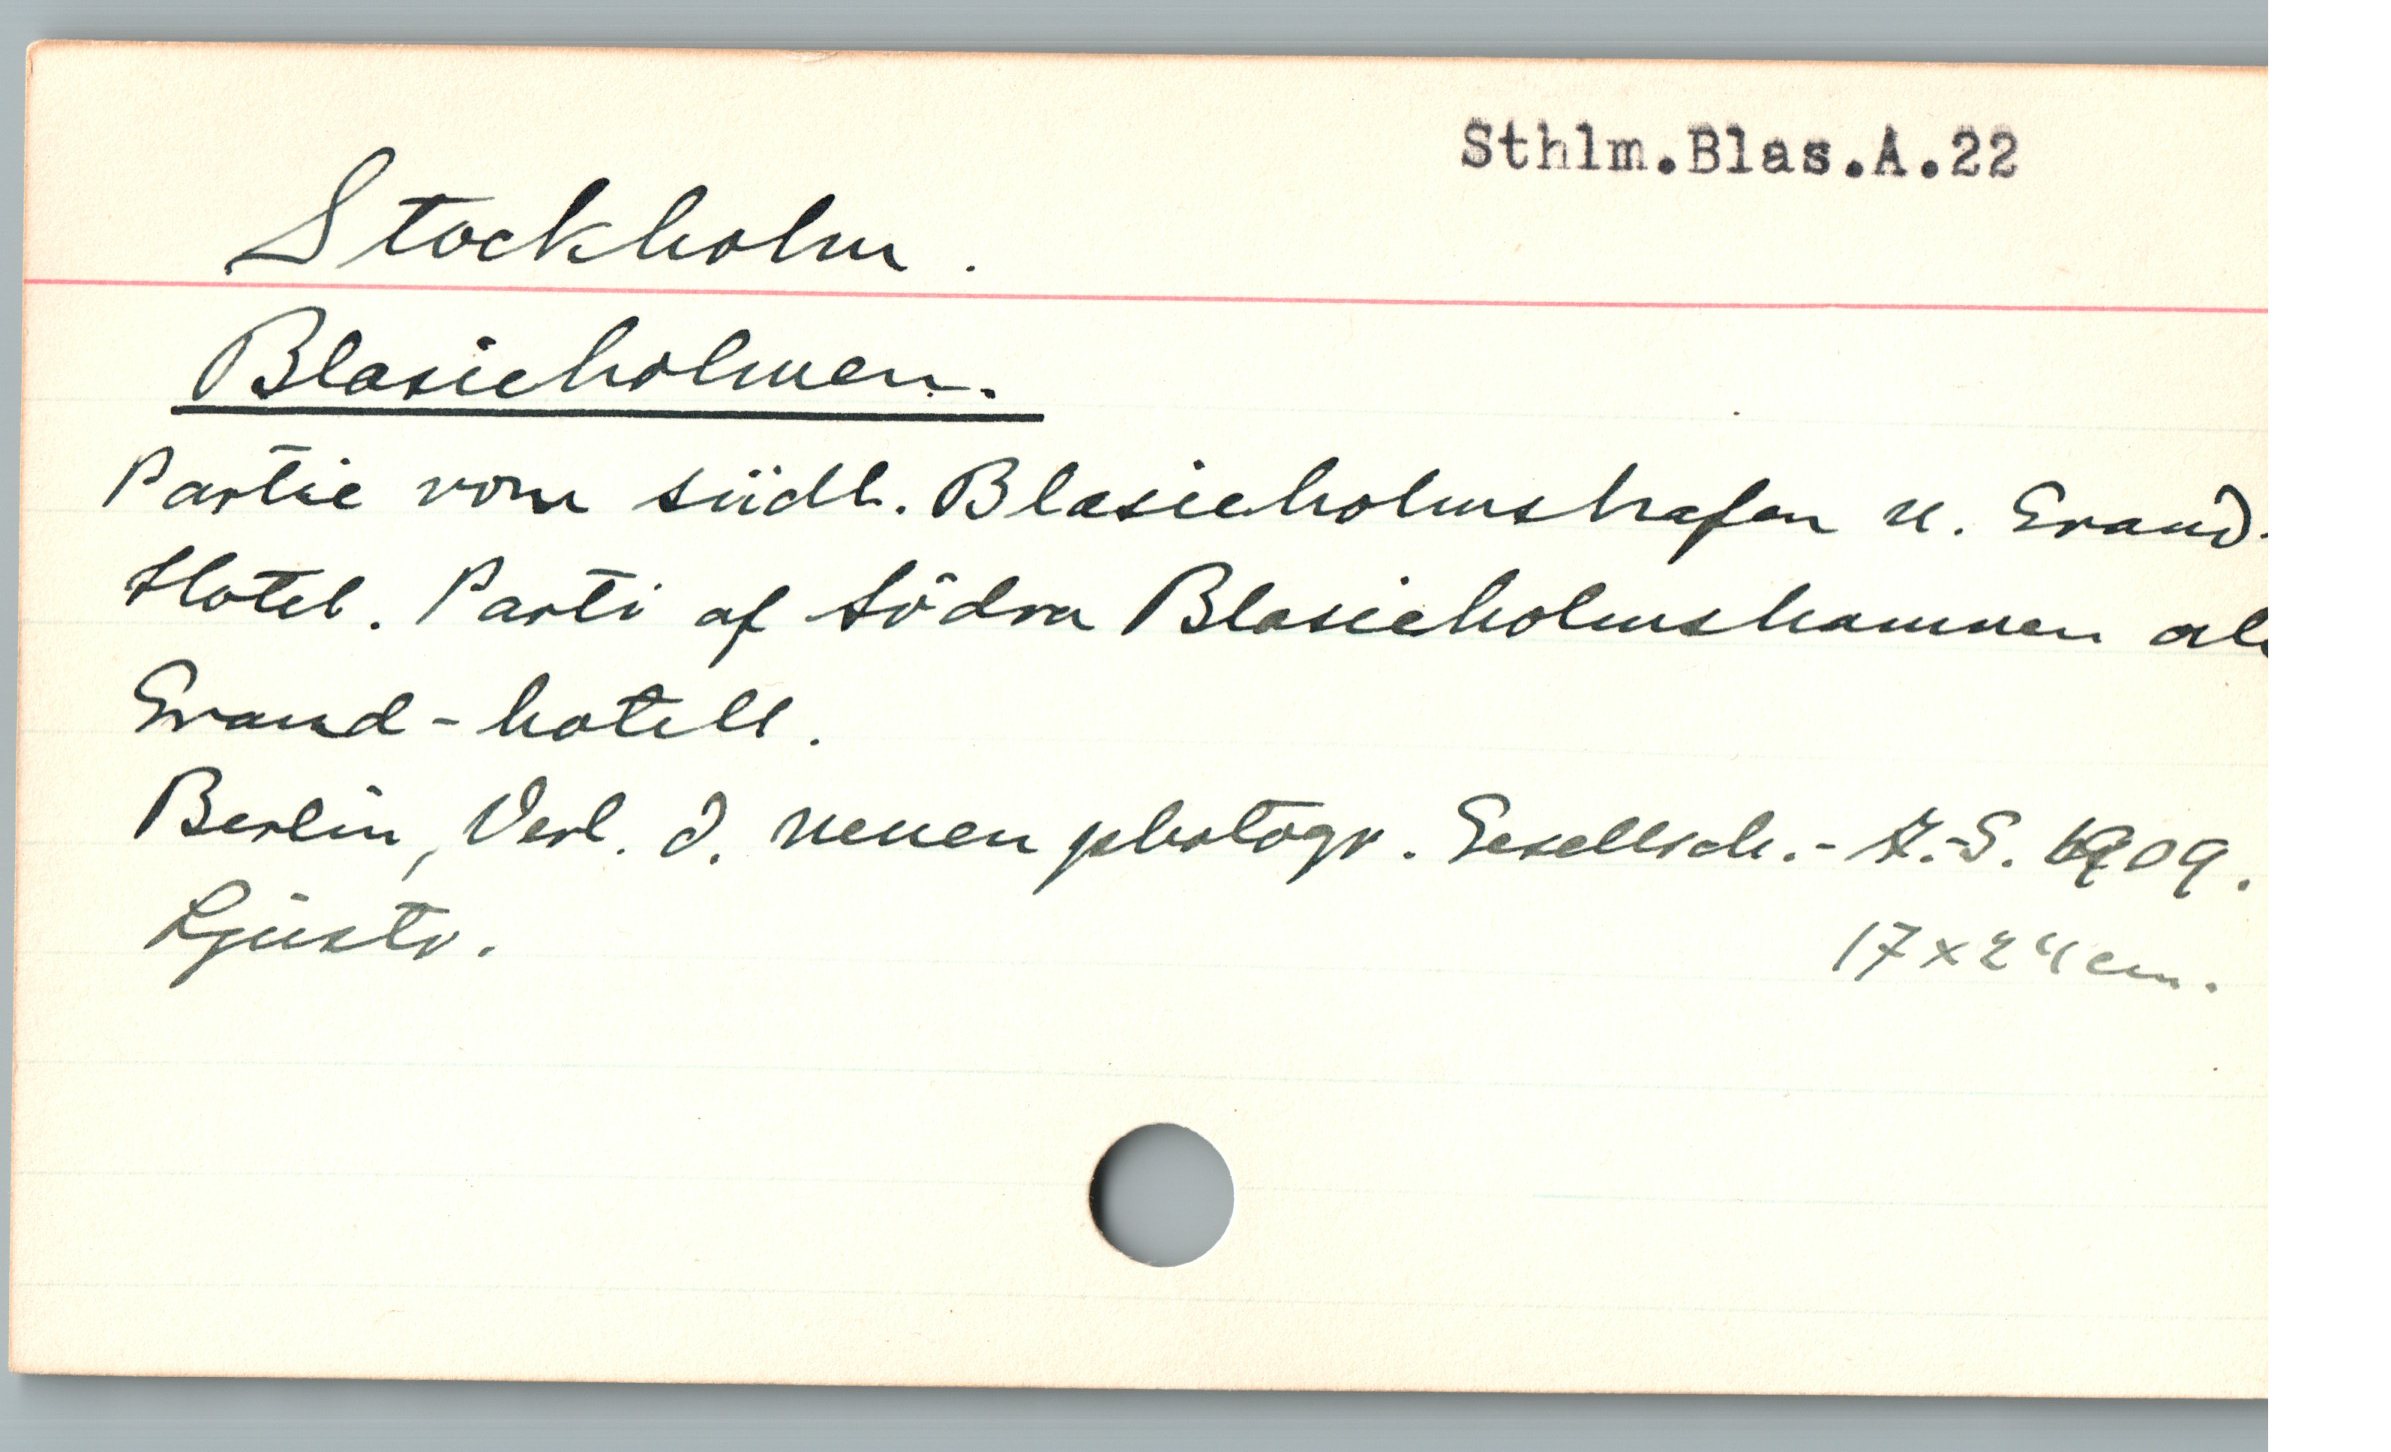 Sthlm.Blas.A.22
Stockholm.
Blasieholmen.
Partie vom südl. Blasieholmshafen u. Grand-
Hotel. Parti af Södra Blasieholmshamnen
Grand-hotell.
Berlin, Verl. d. neuen photogr. Gesellsch.- A.-G. 1909.
Ljustr.
17x24 cm.